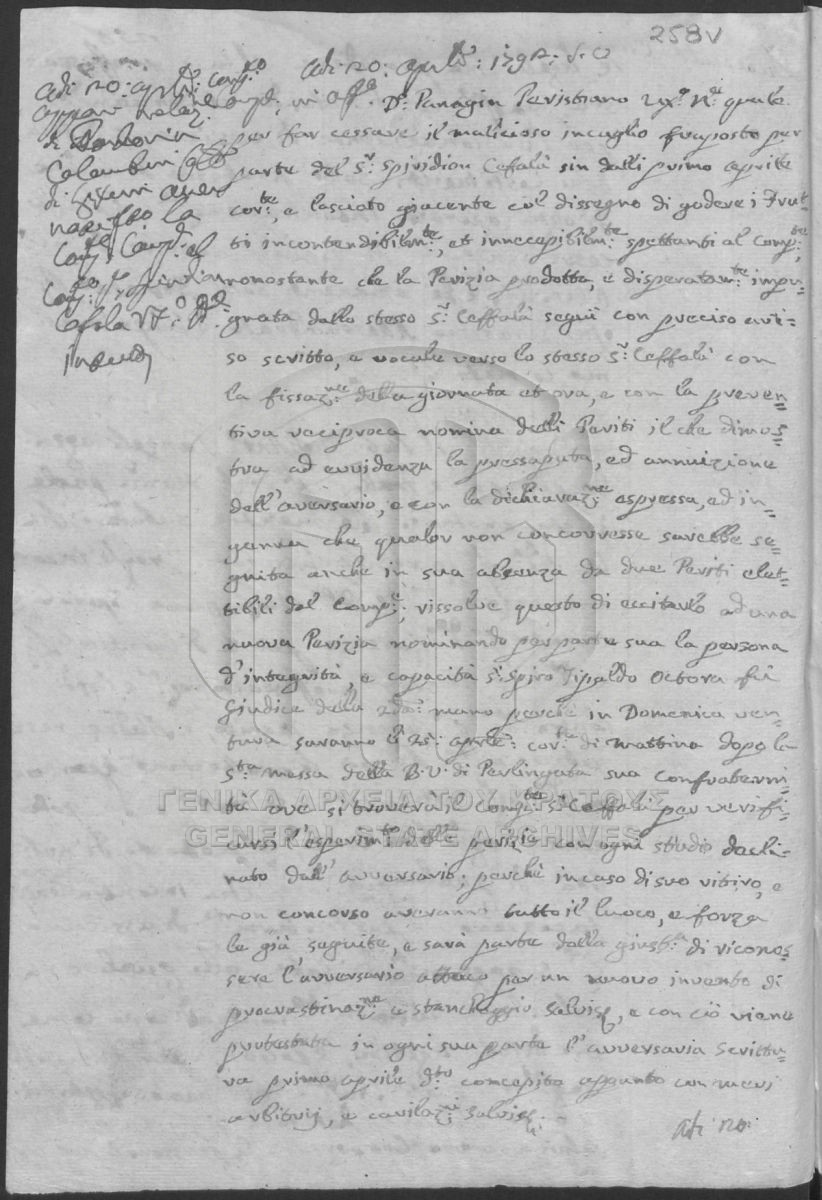 258v
Adi 20: aprle: 1792: S.V.
Adi 20: aprle:
di
Colombin
Dn. Panagin Peristiano quale
per far cessare il malicioso incaglio fraposto per
parte del Sr. Spiridion Cefalà sin dalli primo aprile
corte:, e lasciato giacente col dissegno di godere i Frut-
ti incontendibilmte:, et inneccepibilmte: spettanti al Compte:,
nonostante che la Perizia prodotta, e disperatamte: impu-
gnata dallo stesso Sr. Ceffalà seguì con preciso avi-
so scritto, e vocale verso lo stesso Sr. Ceffalà con
la fissazne: della giornata et ora, e con la preven=
tiva reciproca nomina delli Periti il che dimos=
tra ad evvidenza la pressaputa, ed annuizione
dell'aversario, e con la dichiarazne: espressa, ed in=
genua che qualor non concorresse sarebbe se=
guita anche in sua absenza da due Periti elet=
tibili dal Compte:, rissolve questo di eccitarlo ad una
nuova Perizia nominando per parte sua la persona
d'integrità, e capacità Sr. Spiro Tipaldo Octora fù
Giudice della 2da: mano perchè in Domenica ven=
tura saranno li 25: aprle: corte: di mattina dopo la
Sta messa della B.V. di Perlingata sua confraterni=
tà ove si troverà il Sr. Ceffalà per verifi=
carsi l'esperimto: della perizia con ogni studio decli=
nato dall'avversario; perchè in caso di suo ritiro, e
non concorso averanno tutto il luoco, e forza
le già seguite, e sarà parte della giusta: di riconos=
sere l'avversario atteso per un nuovo invento di
procrastinazne: e stancheggio Salvis, e con ciò viene
protestata in ogni sua parte l'avversaria Scrittu=
ra primo aprile dto: concepita appunto con meri
arbitrij, e cavilazni: Salvis:
Adi 20:
ΓΕΝΙΚΑ ΑΡΧΕΙΑ ΤΟΥ ΚΡΑΤΟΥΣ
GENERAL STATE ARCHIVES